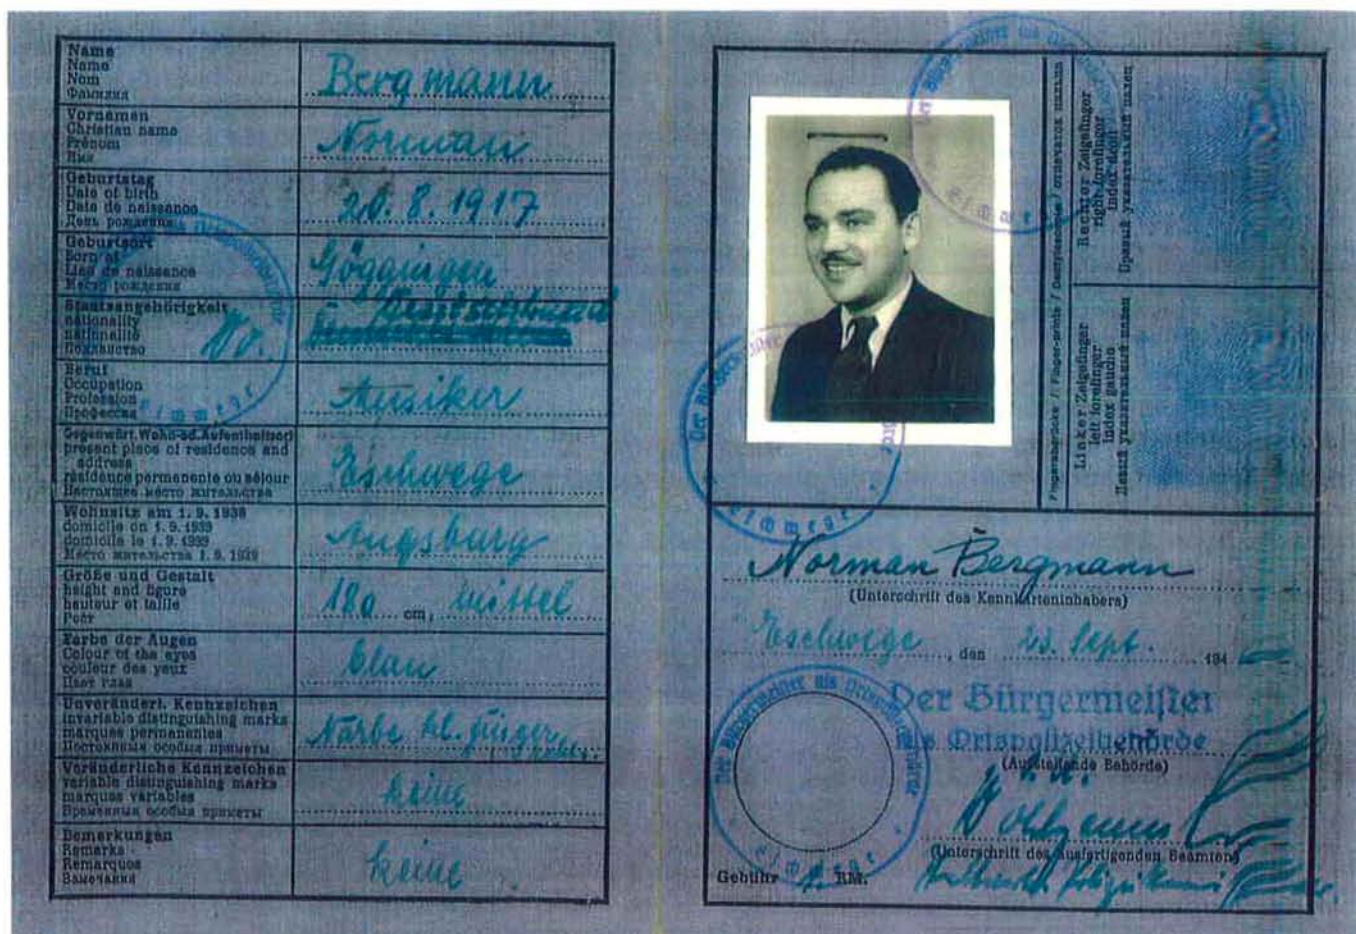 Name
Name
Nom
Фамилия
Bergmann
Vornamen
Christian name
Prénom
Имя
Norman
Geburtstag
Date of birth
Date de naissance
День рождения
20. 8. 1917
Geburtsort
Born at
Lieu de naissance
Место рождения
Göggingen
Staatsangehörigkeit
nationality
nationalité
Подданство
Wo.
Deutschland
Beruf
Occupation
Profession
Профессия
Musiker
Gegenwärt. Wohn-od. Aufenthaltsort
present place of residence and
address
résidence permanente ou séjour
Настоящее место жительства
Eschwege
Wohnsitz am 1. 9. 1939
domicile on 1. 9. 1939
domicile le 1. 9. 1939
Место жительства 1. 9. 1939
Augsburg
Größe und Gestalt
height and figure
hauteur et taille
Рост
180 cm, mittel
Farbe der Augen
Colour of the eyes
couleur des yeux
Цвет глаз
blau
Unveränderl. Kennzeichen
invariable distinguishing marks
marques permanentes
Постоянные особые приметы
Narbe kl. Finger
Veränderliche Kennzeichen
variable distinguishing marks
marques variables
Временные особые приметы
keine
Bemerkungen
Remarks
Remarques
Замечания
keine
Der Bürgermeister als Ortspolizeibehörde
Eschwege
Fingerabdrücke / Finger-prints / Dactyloscopie / отпечаток пальца
Rechter Zeigefinger
right forefinger
index droit
Правый указательный палец
Linker Zeigefinger
left forefinger
index gauche
Левый указательный палец
Norman Bergmann
(Unterschrift des Kennkarteninhabers)
Eschwege, den 23. Sept. 194
Der Bürgermeister
als Ortspolizeibehörde
(Ausstellende Behörde)
Der Bürgermeister als Ortspolizeibehörde
Eschwege
(Unterschrift des ausfertigenden Beamten)
Gebühr 1. RM.